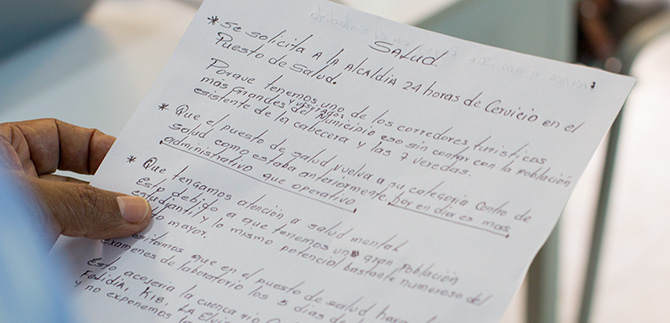 Salud.
* Se solicita A la Alcaldia 24 horas de Cervicio en el
Puesto de Salud.
Porque tenemos uno de los corredores turisticos
más Grandes y visitados del Municipio eso sin contar con la población
existente de la cabecera y las 7 veredas.
* Que el puesto de salud vuelva a su categoria Centro de
salud como estaba anteriormente hoy en dia es mas
administrativo que operativo.
* Que tengamos atención a salud mental
esto debido a que tenemos una gran población
estudiantil y lo mismo potencial bastante numeroso del
mayor.
que en el puesto de salud
examenes de laboratorio los 5 dias de
Esto acojeria la cuenca rio
y no exponemos